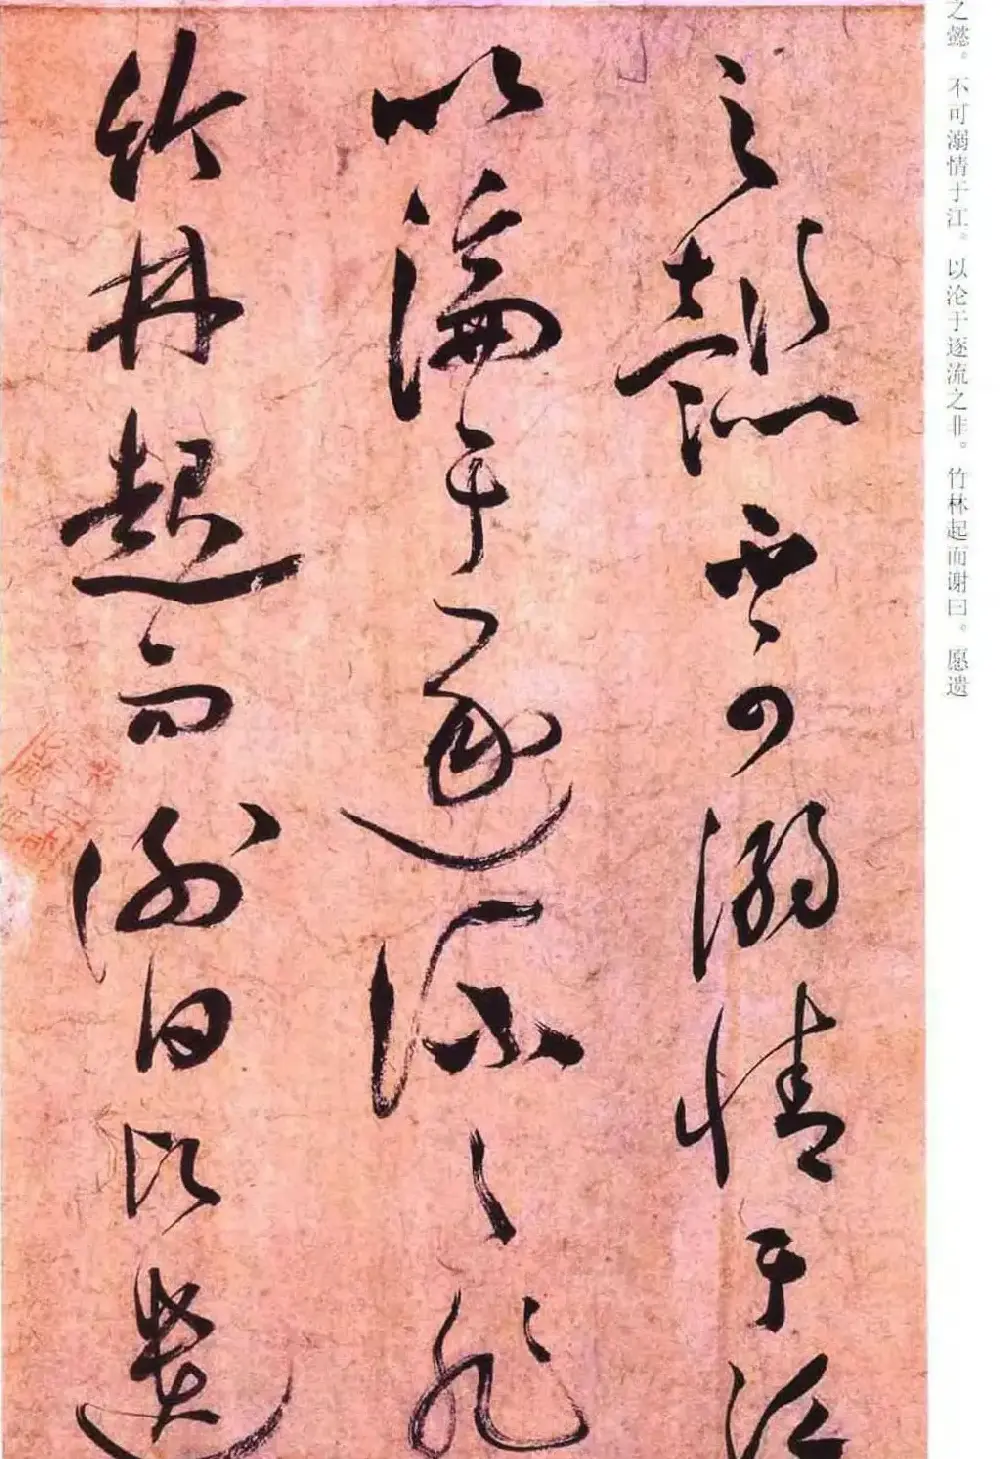 之懿。不可溺情于江。以沦于逐流之非。竹林起而谢曰。愿遗
之懿不可溺情于江
以淪于逐流之非
竹林起而謝曰
遺